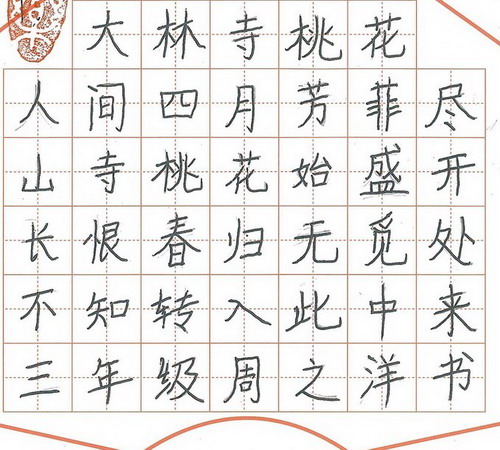 大林寺桃花
人间四月芳菲尽
山寺桃花始盛开
长恨春归无觅处
不知转入此中来
三年级周之洋书